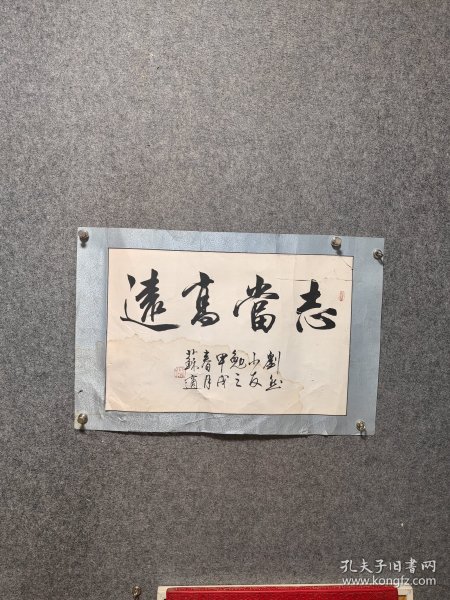 志當高遠
小友
勉之
甲戌
春月
孔夫子旧书网
www.kongfz.com